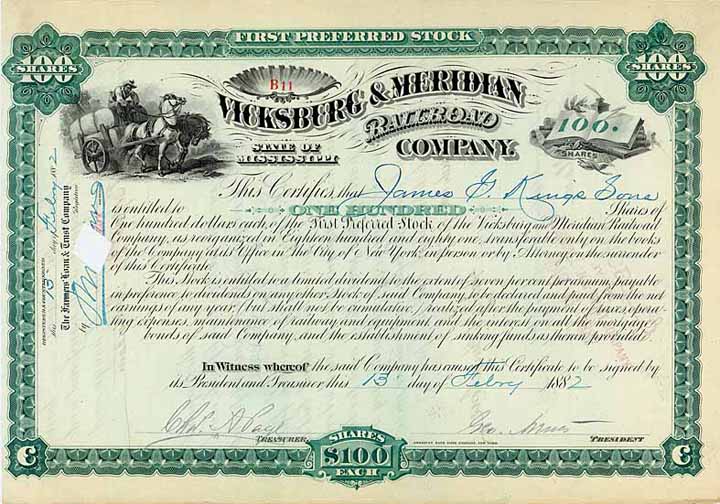 FIRST PREFERRED STOCK
100
SHARES
100
SHARES
B11
VICKSBURG & MERIDIAN
RAILROAD
COMPANY.
STATE OF
MISSISSIPPI
100.
SHARES
This Certifies that James G Kings Sons
is entitled to ONE HUNDRED Shares of
One hundred dollars each, of the First Preferred Stock of the Vicksburg and Meridian Railroad
Company, as reorganized in Eighteen hundred and eighty one, transferable only on the books
of the Company at its Office in The City of New York, in person or by Attorney, on the surrender
of this Certificate.
This Stock is entitled to a limited dividend to the extent of seven per cent per annum, payable
in preference to dividends on any other Stock of said Company, to be declared and paid from the net
earnings of any year, (but shall not be cumulative) realized after the payment of taxes, operating
expenses, maintenance of railway and equipment, and the interest on all the mortgage
bonds of said Company, and the establishment of sinking funds as therein provided.
In Witness whereof the said Company has caused this Certificate to be signed by
its President and Treasurer this 13 day of Febry 1882
Chas. A Page
TREASURER.
Geo.
PRESIDENT
AMERICAN BANK NOTE COMPANY, NEW YORK.
SHARES
$100
EACH
this 13 day of Febry 1882
The Farmers' Loan & Trust Company
Registrar
by